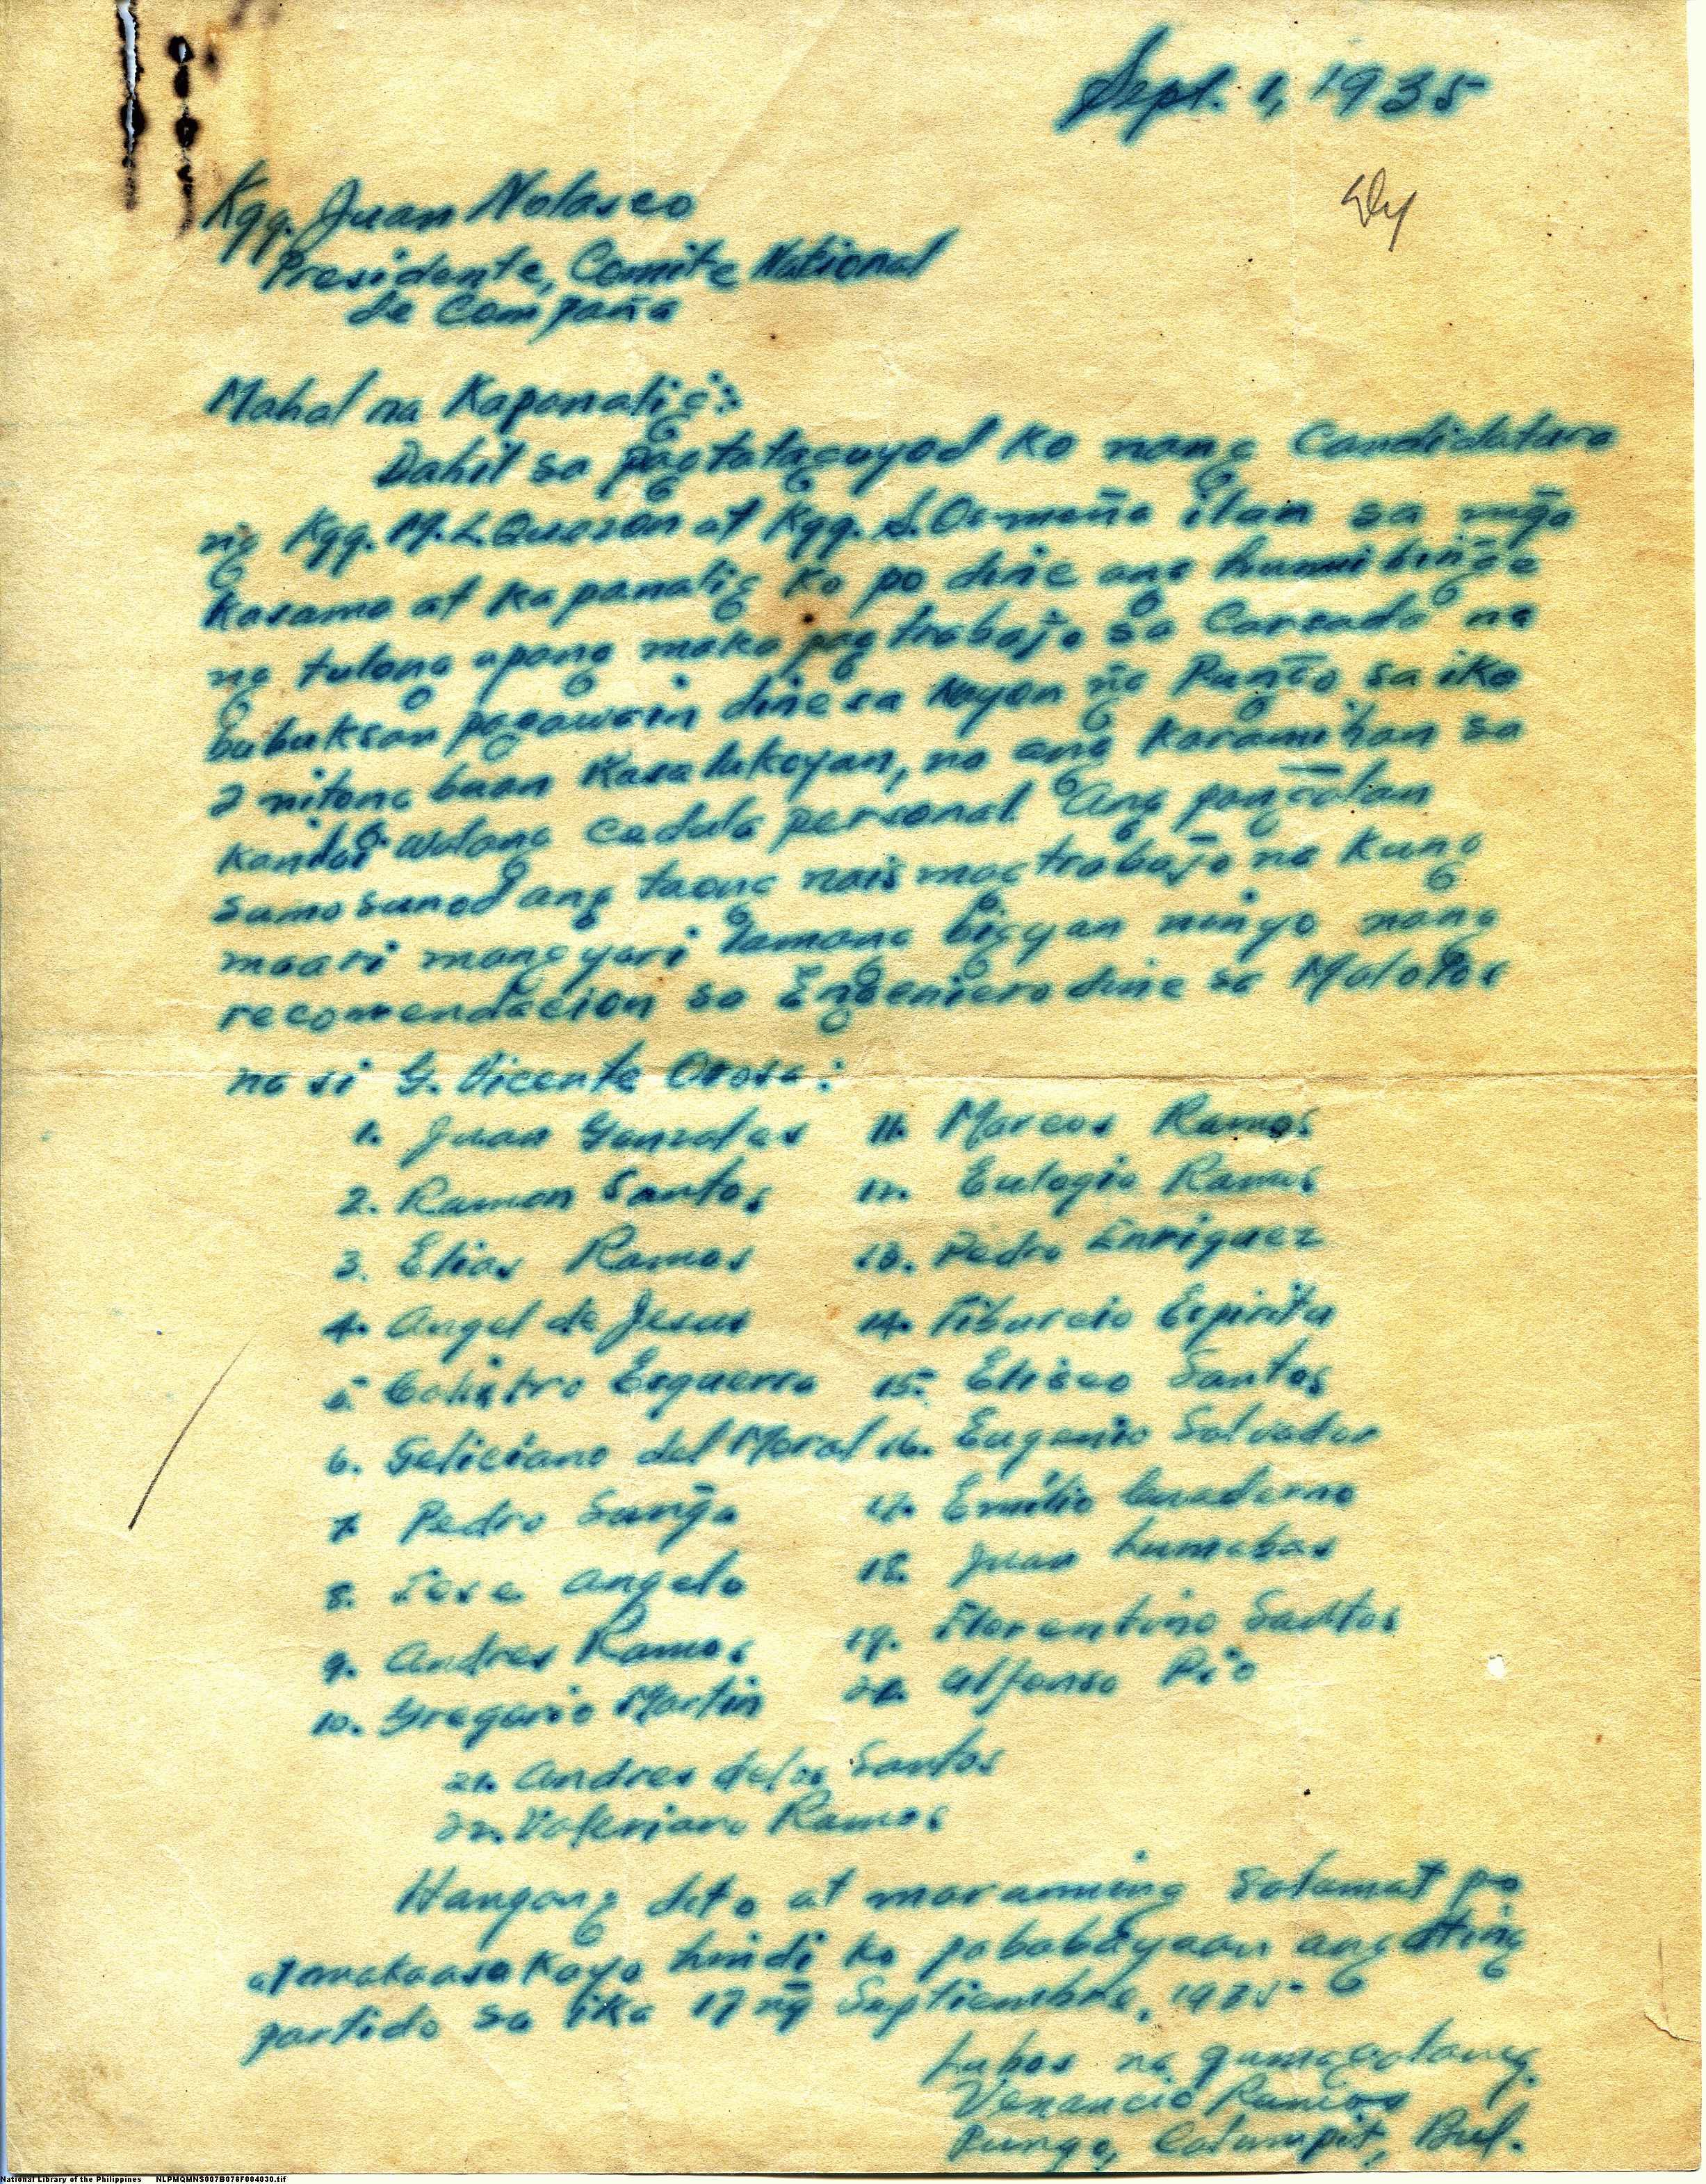 Sept. 1, 1935
Kgg. Juan Nolasco
Presidente, Comite National
de Compaña
Mahal na Kapanalig:
Dahil sa pagtataguyod ko nang Candidatura
ng Kgg. M. L. Quezon at Kgg. S. Osmeña ilan sa mga
kasama at kapanalig ko po dine ang humihinge
ng tulong upang maka pag trabajo sa Carsada na
bubuksan pagawain dine sa Nayon ng Pungo sa ika
2 nitong buan kasalukoyan, na ang karamihan sa
kanila'y walang cedula personal. Ang pangalan
sumosunod ang taong nais mag trabajo na kung
maari mangyari lamang bigyan ninyo nang
recomendacion sa Engeniero dine sa Malolos
na si G. Vicente Orosa:
1. Juan Gonzales 11. Marcos Ramos
2. Ramon Santos 12. Eulogio Ramos
3. Elias Ramos 13. Pedro Enriquez
4. Angel de Jesus 14. Tiburcio Espiritu
5. Calistro Esguerra 15. Eliseo Santos
6. Feliciano del Moral 16. Eugenio Salvador
7. Pedro Sunga 17. Emilio Cuaderno
8. Jose Angelo 18. Juan Lumabas
9. Andres Ramos 19. Florentino Santos
10. Gregorio Martin 20. Alfonso Pio
21. Andres delos Santos
22. Valeriano Ramos
Hangang dito at maraming salamat po
at makaasa kayo hindi ko pababayaan ang ating
partido sa ika 17 ng Septiembre, 1935
Lubos na gumagalang.
Venancio Ramos
Pungo, Calumpit, Bul.
National Library of the Philippines NLPMQMNS007B078F004030.tif